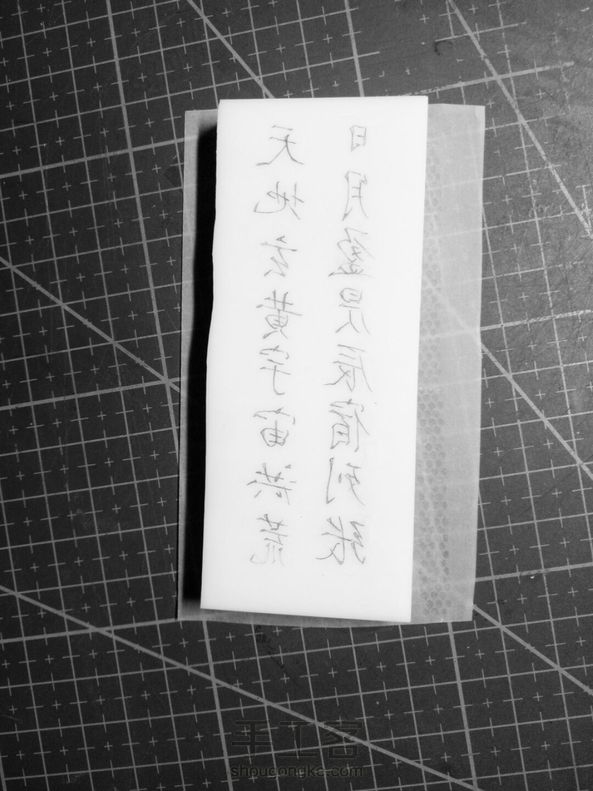 天地玄黄宇宙洪荒
日月盈昃辰宿列張
手工客
shougongke.com